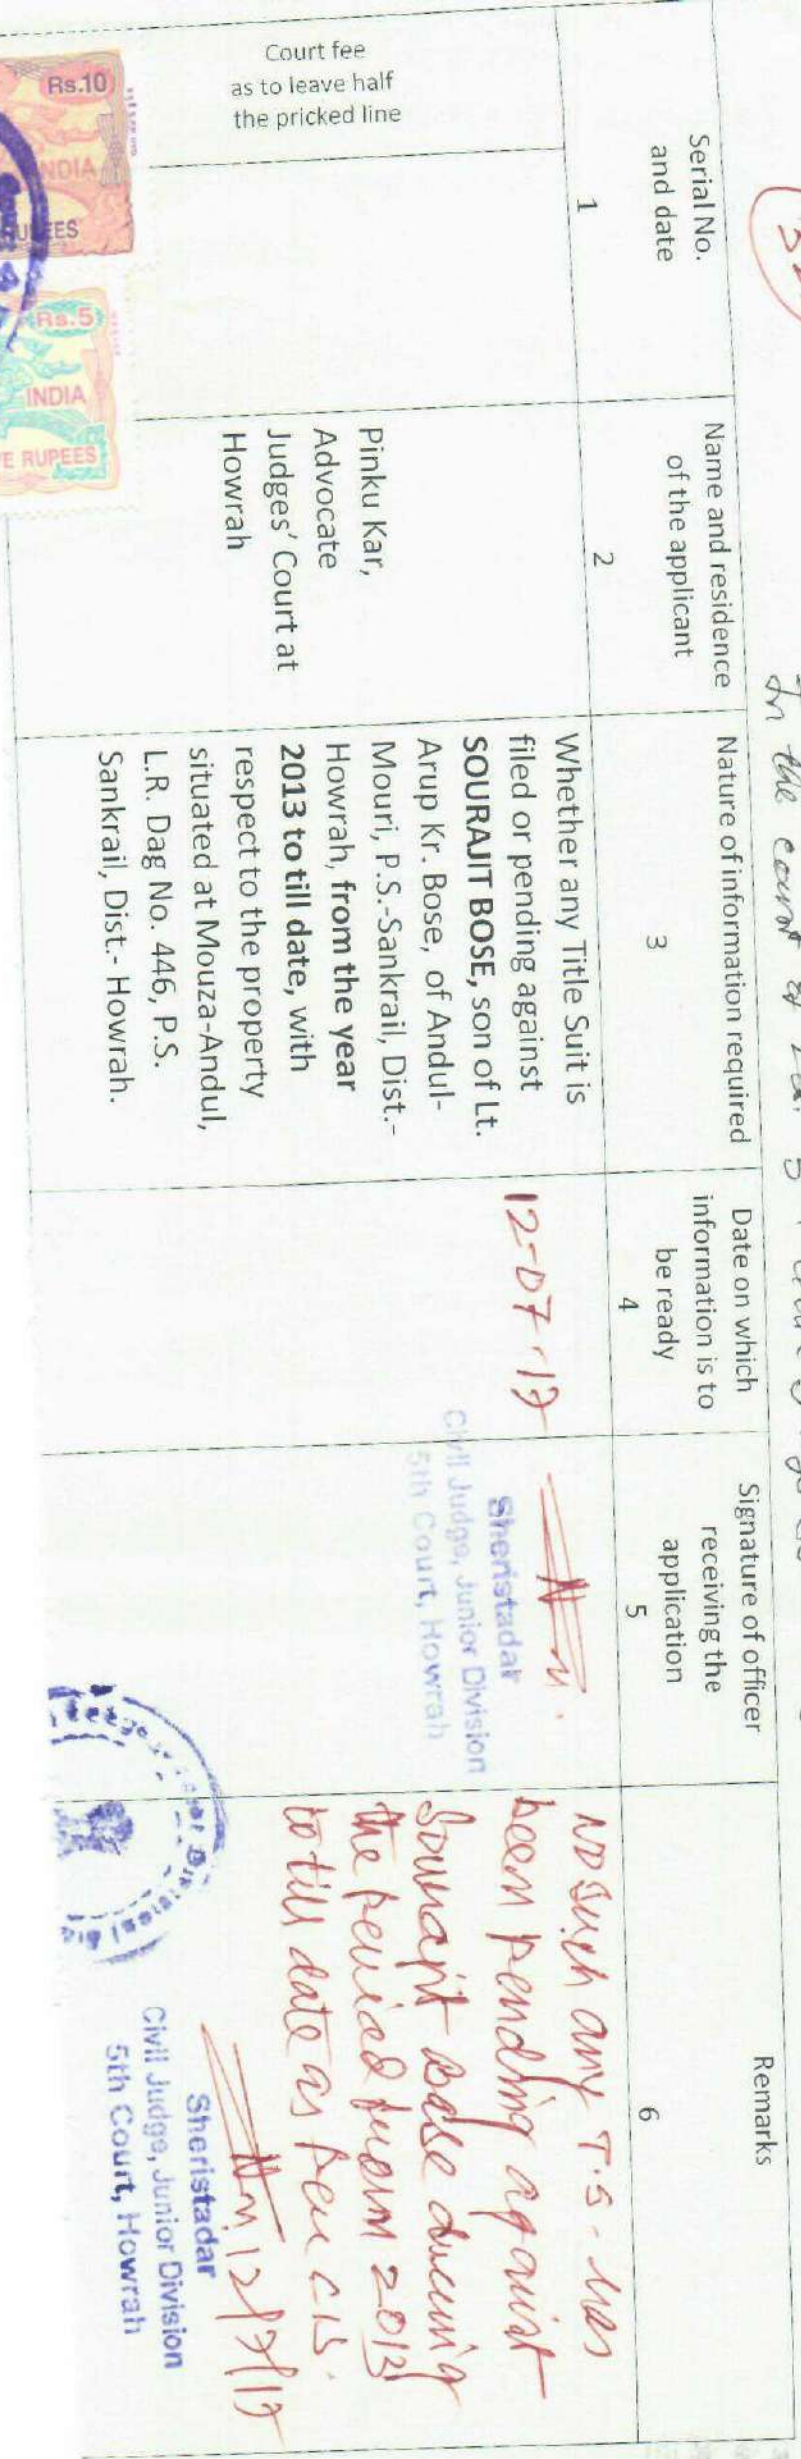 In the court of
Serial No.
and date
Name and residence
of the applicant
Nature of information required
Date on which
information is to
be ready
Signature of officer
receiving the
application
Remarks
1
2
3
4
5
6
Court fee
as to leave half
the pricked line
Pinku Kar,
Advocate
Judges' Court at
Howrah
Whether any Title Suit is
filed or pending against
SOURAJIT BOSE, son of Lt.
Arup Kr. Bose, of Andul-
Mouri, P.S.-Sankrail, Dist.-
Howrah, from the year
2013 to till date, with
respect to the property
situated at Mouza-Andul,
L.R. Dag No. 446, P.S.
Sankrail, Dist.- Howrah.
12-07-17
Sheristadar
Civil Judge, Junior Division
5th Court, Howrah
No such any T.S. has
been pending against
Sourajit Bose during
the period from 2013
to till date as per CIS.
12/7/17
Sheristadar
Civil Judge, Junior Division
5th Court, Howrah
Rs.10
INDIA
RUPEES
Rs.5
INDIA
E RUPEES